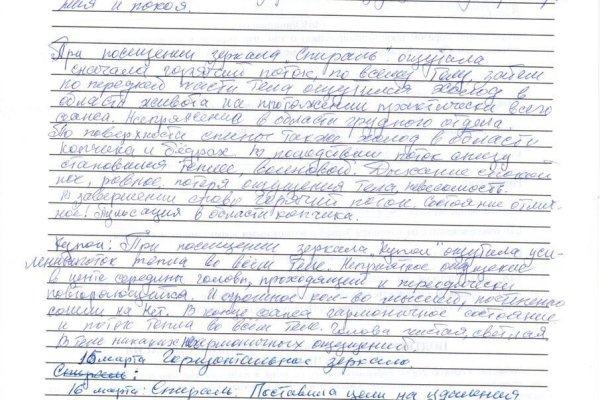 ния и покоя.
При посещении зеркала "Спираль" ощутила
сначала горячий поток, по всему телу, затем
по передней части тела ощущался холод в
области живота на протяжении практически всего
сеанса. Напряжение в области грудного отдела.
По поверхности спины также холод в области
копчика и бёдрах. В последствии поток снизу
становился теплее, волновой. Дыхание спокой
ное, ровное, потеря ощущения тела, невесомость.
В завершении снова горячий поток. Состояние отлич-
ное. Пульсация в области копчика.
Купол: При посещении зеркала "Купол" ощутила уси-
ление поток тепла во всём теле. Неприятное ощущение
в центе середины головы, проходящий и переодически
повторяющийся. И огромное кол-во мыслей, постепенно
сошли на нет. В конце сеанса гармоничное состояние
и поток тепла во всём теле. Голова чистая, светлая,
в теле никаких негармоничных ощущений.
15 марта Горизонтальное зеркало.
Спираль:
16 марта: Спираль. Поставила цели на удаления